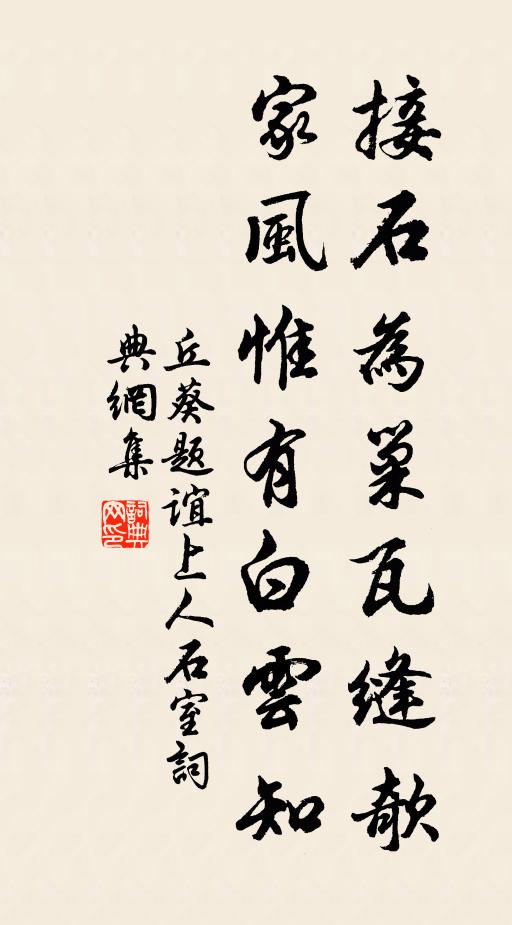 接石為巢瓦縫欹
家風惟有白雲知
丘葵題誼上人石室詞
典網集
詞典网印